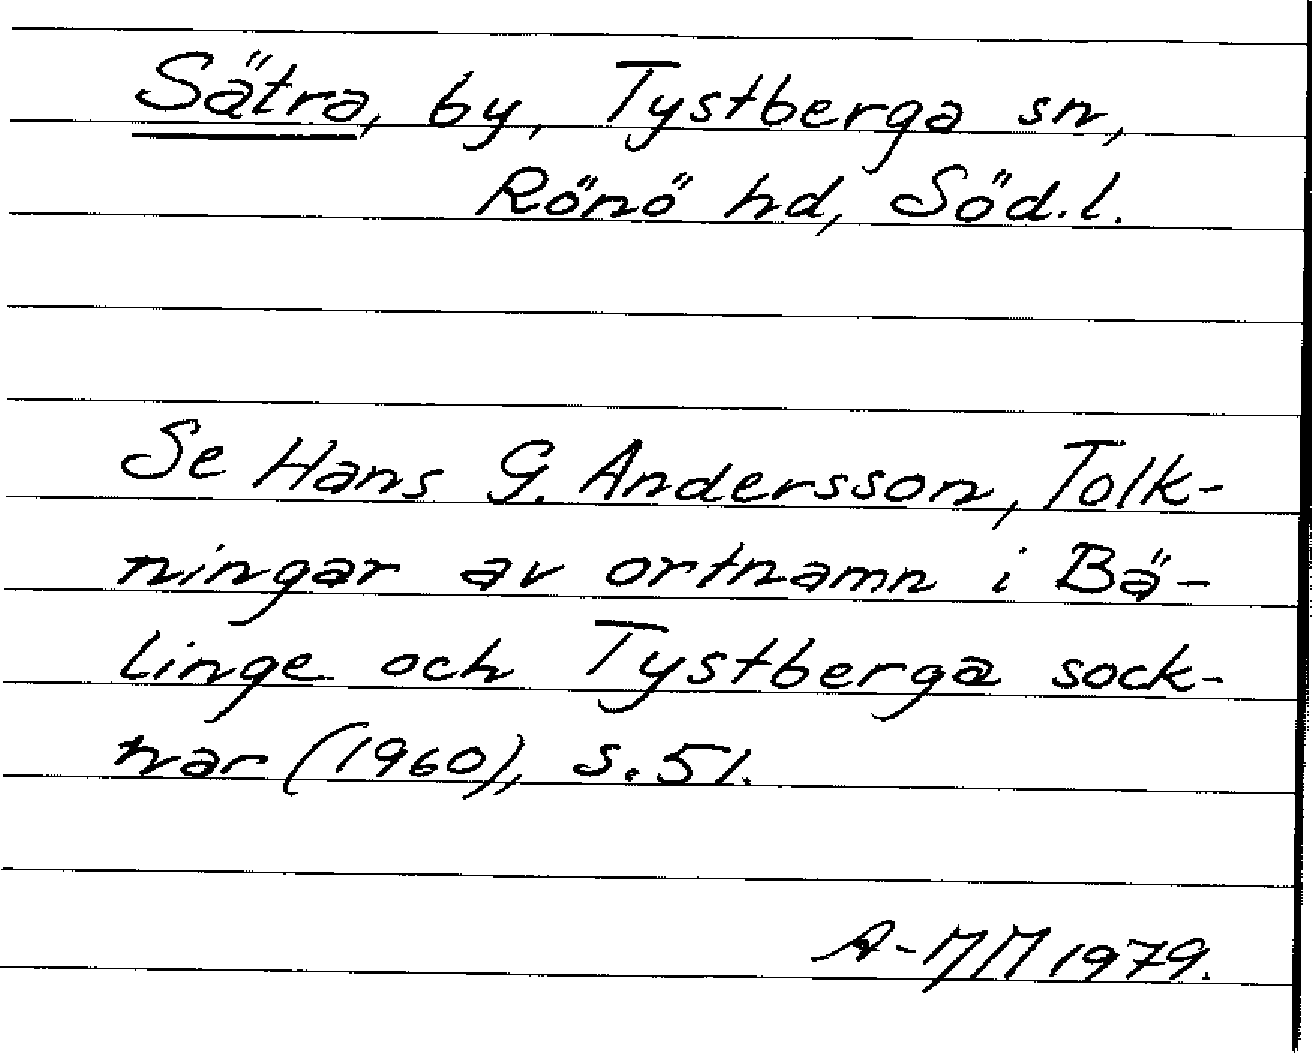 Sätra, by, Tystberga sn,
Rönö hd, Söd.l.
Se Hans G. Andersson, Tolk-
ningar av ortnamn i Bä-
linge och Tystberga sock-
nar (1960), s. 51.
A-MM 1979.